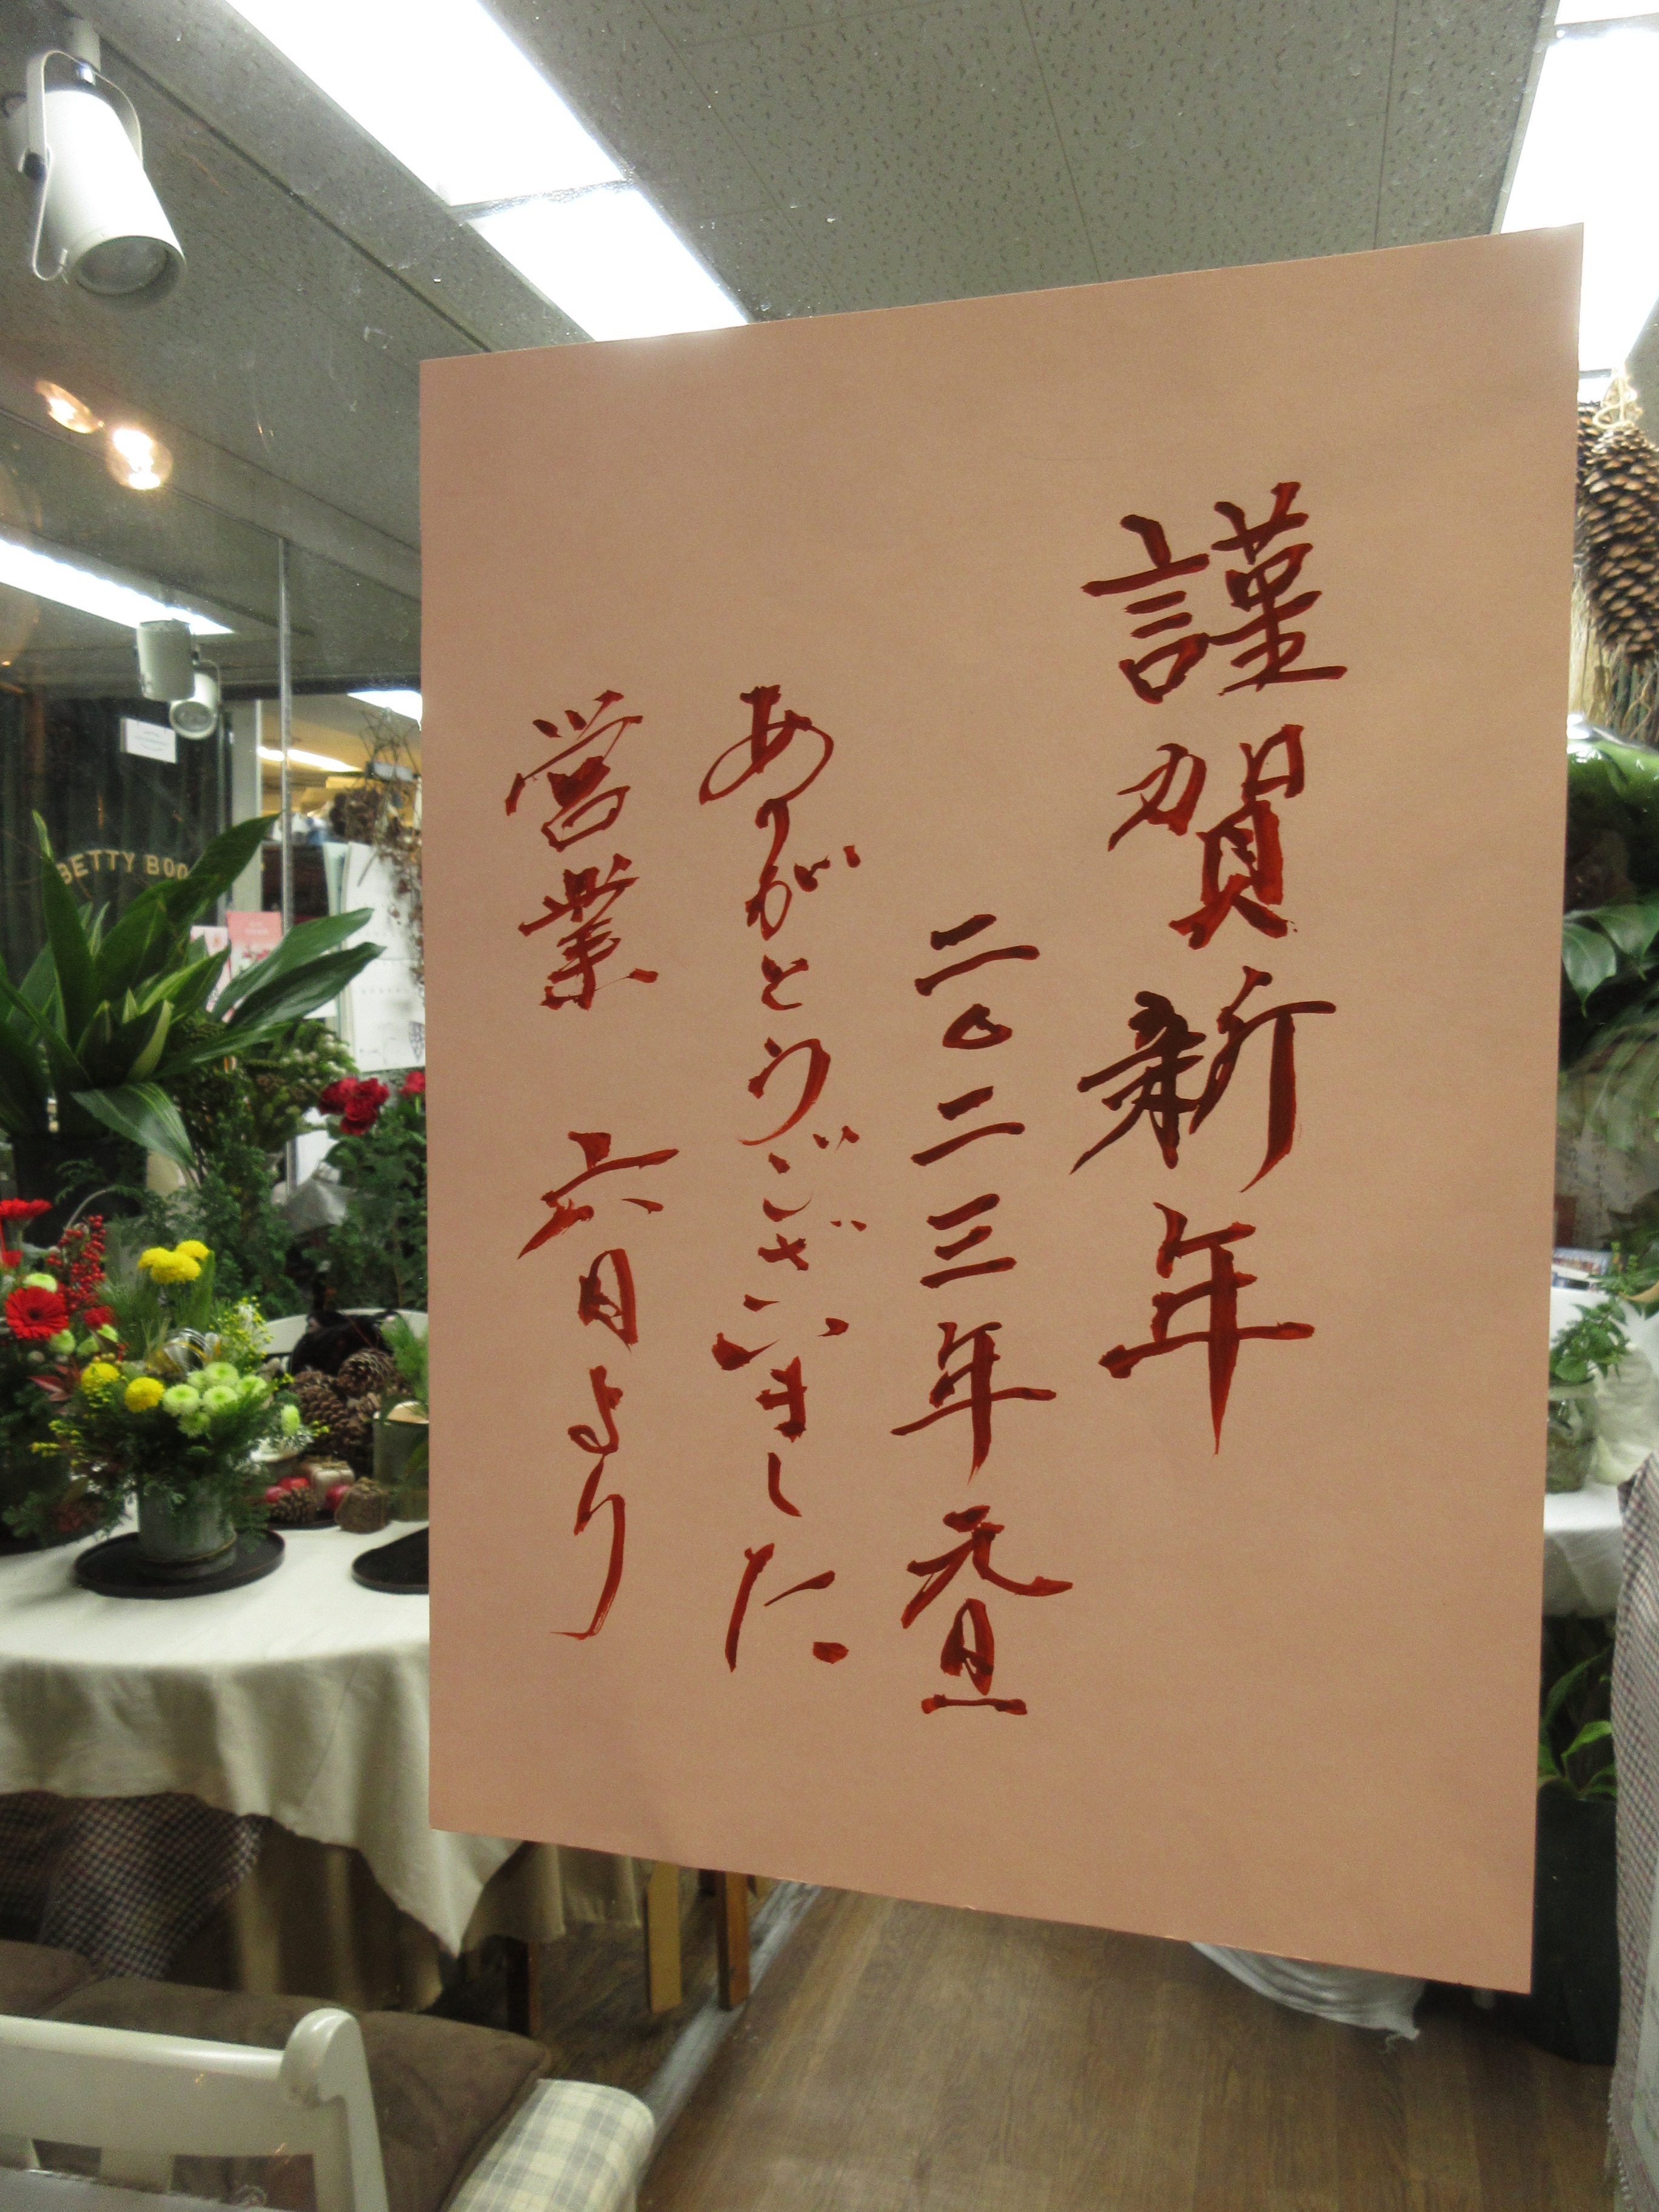 謹賀新年
二〇二三年元旦
ありがとうございました
営業 六日より
BETTY BOO